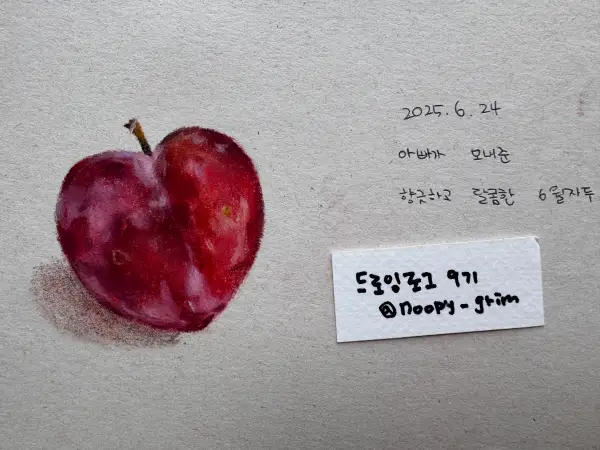 2025.6.24
아빠가 보내준
향긋하고 달콤한 6월자두
드로잉로그 9기
@noopy_grim